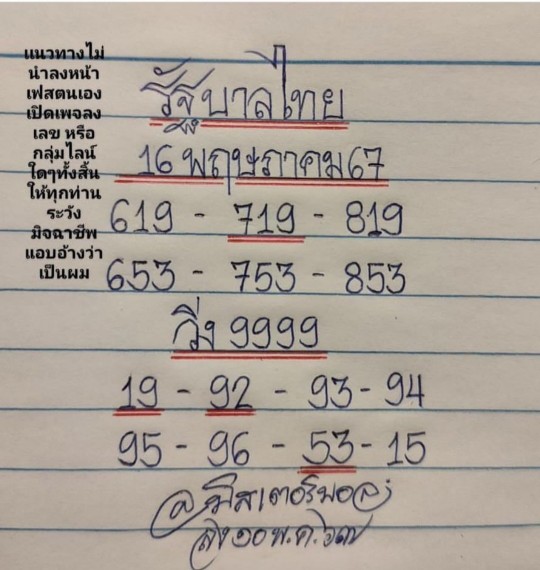 แนวทางไม่
นำลงหน้า
เฟสตนเอง
เปิดเพจลง
เลข หรือ
กลุ่มไลน์
ใดๆทั้งสิ้น
ให้ทุกท่าน
ระวัง
มิจฉาชีพ
แอบอ้างว่า
เป็นผม
รัฐบาลไทย
16 พฤษภาคม67
619 - 719 - 819
653 - 753 - 853
วิ่ง 9999
19 - 92 - 93 - 94
95 - 96 - 53 - 15
@มิสเตอร์บอล
ส่ง ๑๐ พ.ค. ๖๗